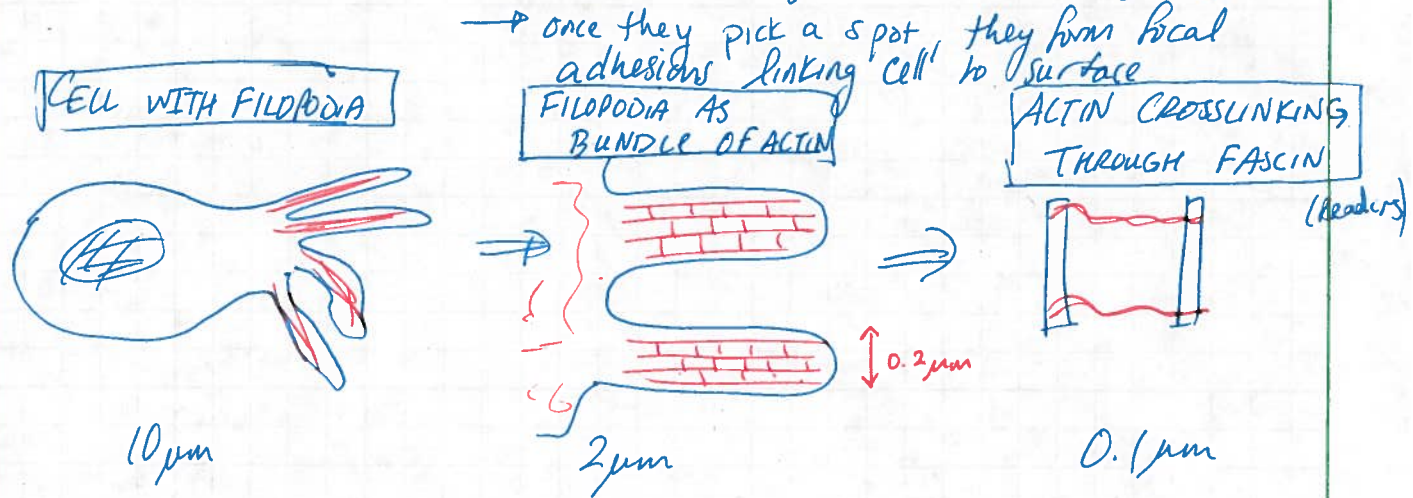 → once they pick a spot, they form focal
adhesions linking cell to surface
CELL WITH FILOPODIA
FILOPODIA AS
BUNDLE OF ACTIN
ACTIN CROSSLINKING
THROUGH FASCIN
(headers)
0.2 µm
10 µm
2 µm
0.1 µm